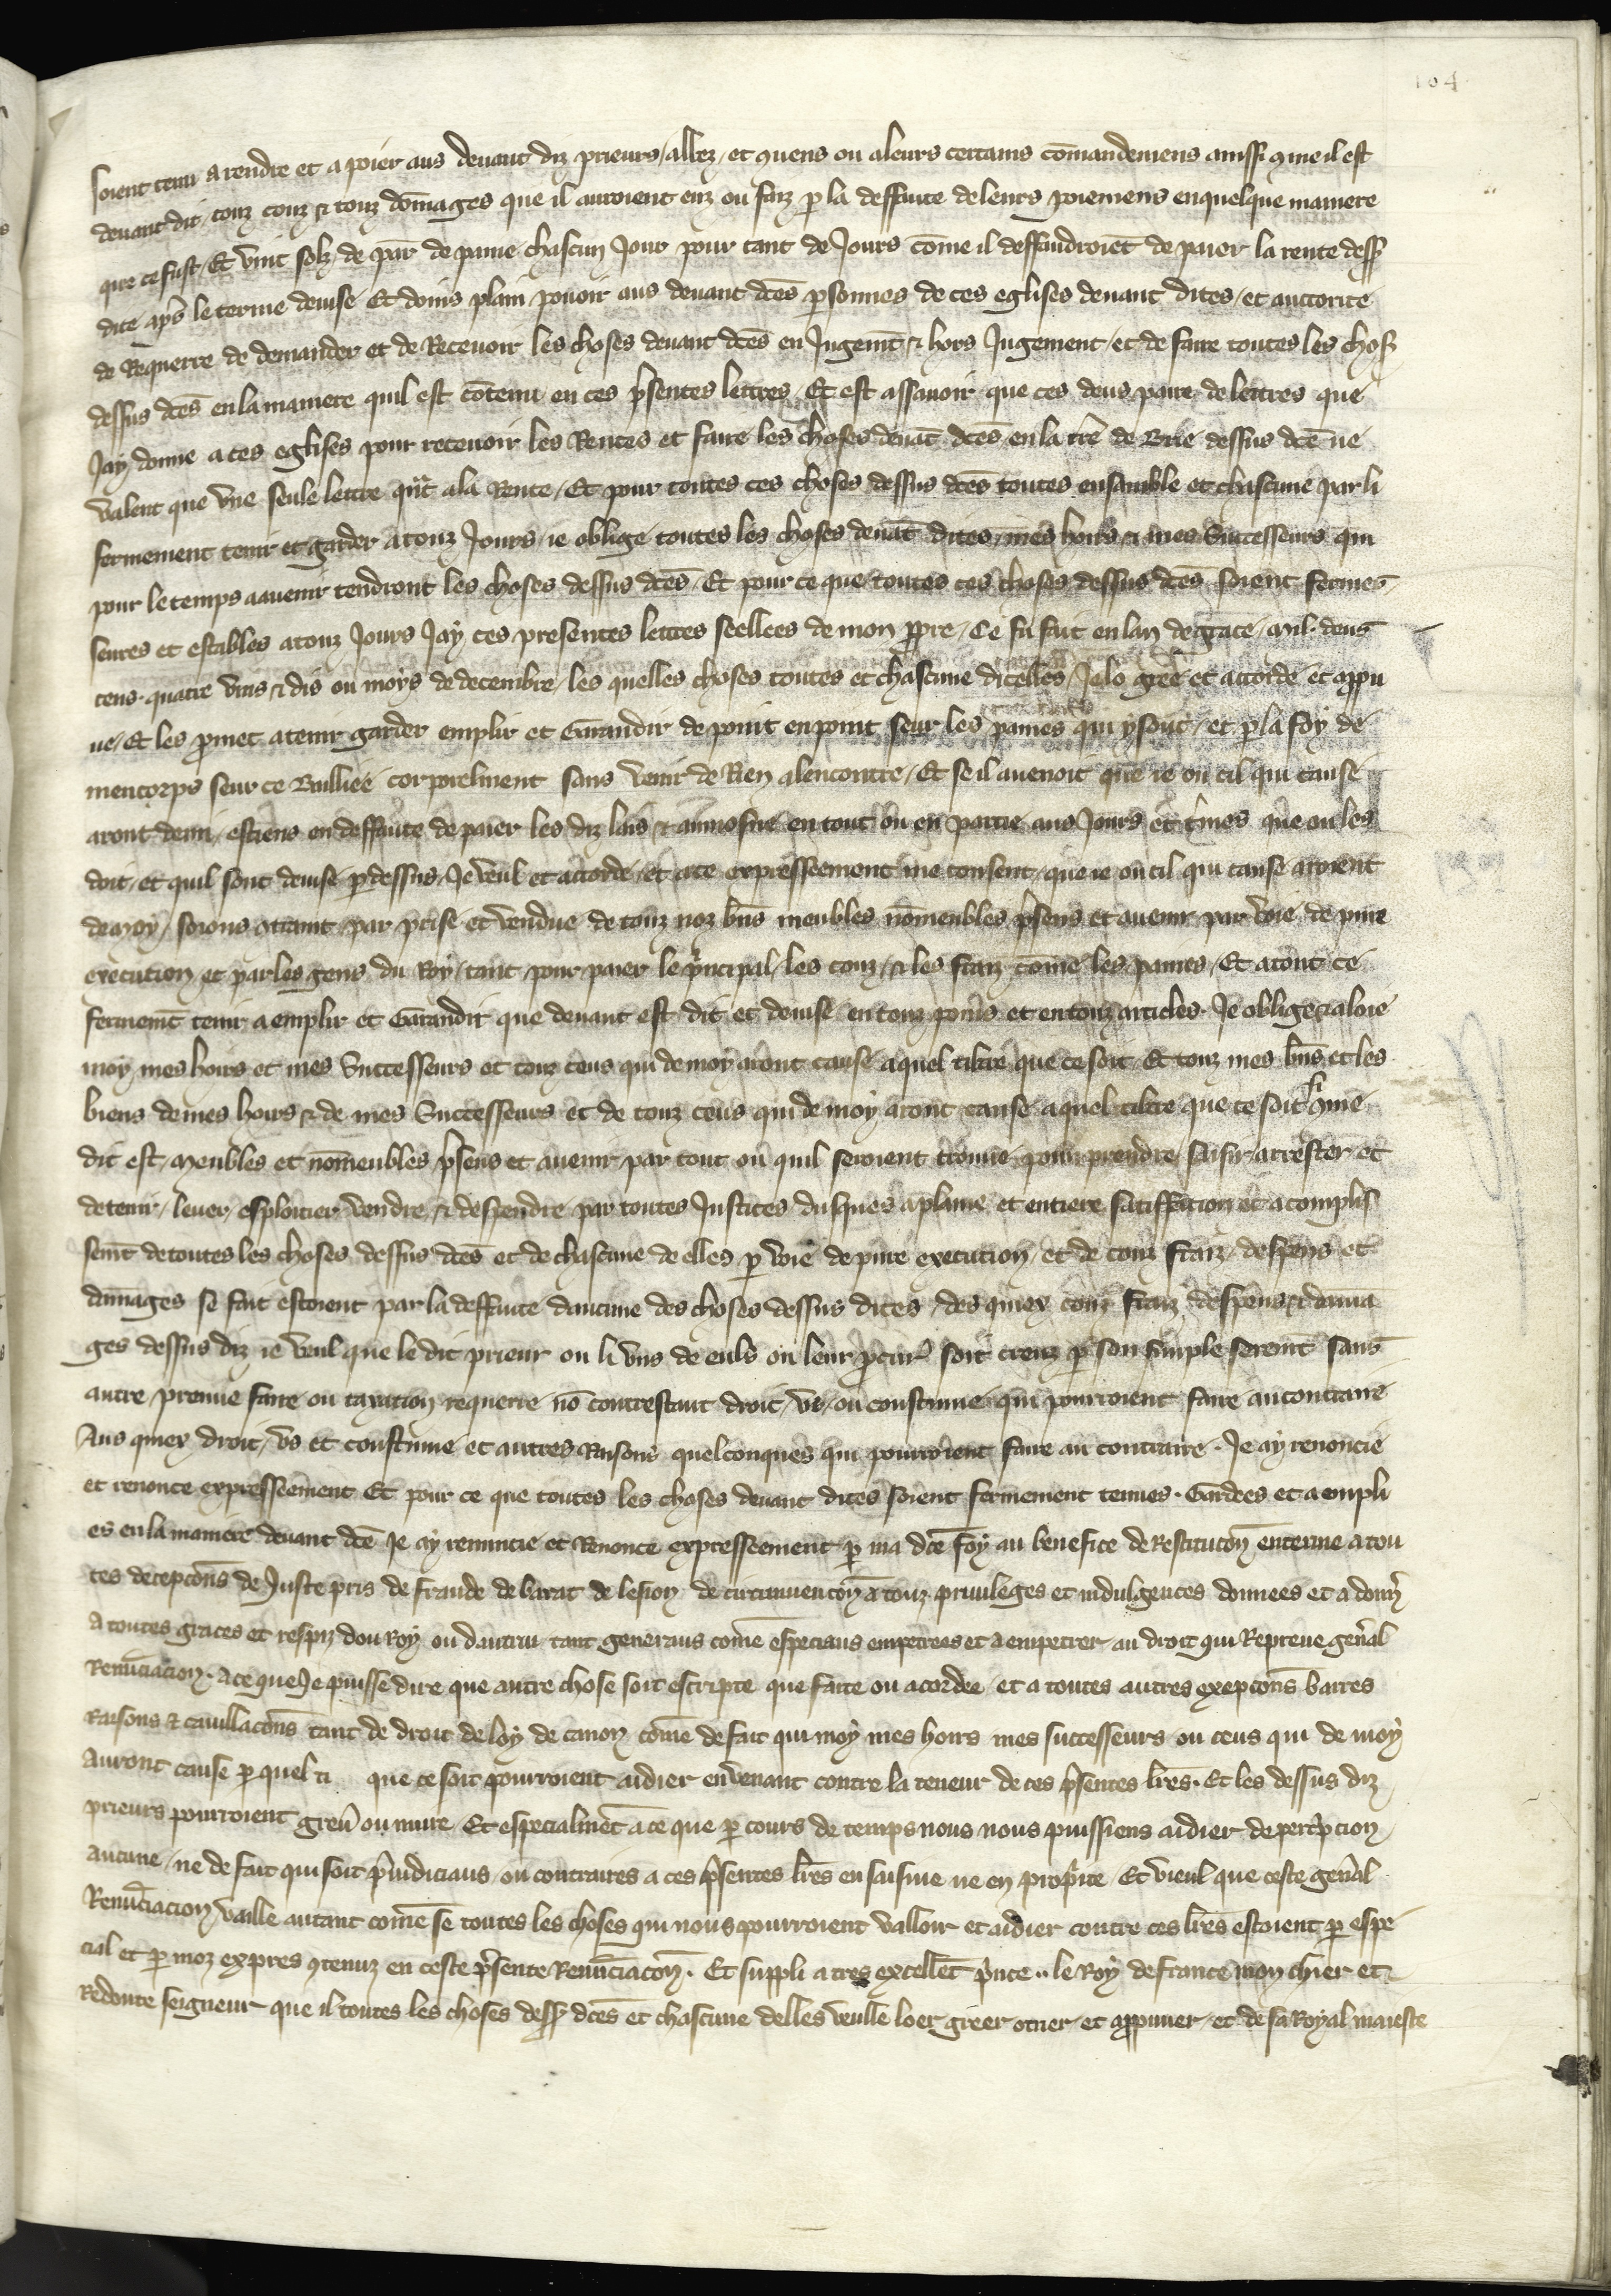 104
soient tenu a rendre et a poier aus devant diz prieurs / allez / et quens ou a leurs certains cōmandemens aussi ꝯme il est
devant dit / touz couz & touz dōmages que il auroient euz ou faiz p la deffaute de leurs poiemens en quelque maniere
que ce fust / Et vint solz de par de paine chascun Jour pour tant de Jours cōme il deffaudroiēt de paier la rente dess
dite ap̄s le terme devise Et doins plain povoir aus devant dc̄es p̄sonnes de ces eglises devant dites / et auctorite
de Requerre de demander et de Recevoir les choses devant dc̄es en Jugem̄t & hors Jugement / et de faire toutes les chos
dessus dc̄es en la maniere quil est cōtenu en ces p̄sentes lettres Et est assavoir que ces deus paire de lettres que
Jay donne a ces eglises pour recevoir les Rentes et faire les choses devāt dc̄es en la tr̄e de Brie dessus dc̄e ne
valent que vne seule lettre qn̄t a la Rente / Et pour toutes ces choses dessus dc̄es toutes ensamble et chascune par li
fermement tenir et garder a touz Jours ie oblige toutes les choses devāt dites mes hoirs & mes Successeurs qui
pour le temps a avenir tendront les choses dessus dc̄es / Et pour ce que toutes ces choses dessus dc̄es soient fermes
seures et estables a touz Jours Jay ces presentes lettres seellees de mon ppre / Ce fu fait en lan de grace mil deus
cens quatre vins & dis ou moys de decembre / les quelles choses toutes et chascune dicelles / Je lo gree et accorde et appu
ve / Et les p̄met a tenir garder emplir et Garandir de point en point seur les paines qui y sont / et p la foy de
mencorps seur ce Bailliee corporelment sans venir de Rien alencontre / Et se il avenoit que ie ou cil qui cause
aront demi estiens en deffaute de paier les diz lais & aumosne en tout ou en partie aus Jours et t̄mes que on les
doit / et quil sont devise p dessus Je veul et accorde et a ce expresseement me consent / que ie ou cil qui cause aroient
de moy / soions ꝯtraint par prise et vendue de touz noz bn̄s meubles nōmeubles p̄sens et avenir par voie de pure
execution et par les gens du Roy / tant pour paier le p̄ncipal / les couz / & les fraiz cōme les paines / Et a tout ce
fermem̄t tenir a emplir et Garandir que devant est dit et devise en touz poins et en touz articles Je oblige & aloie
moy / mes hoirs et mes Successeurs et touz ceus qui de moy aront cause a quel tiltre que ce soit Et touz mes bn̄s et les
biens de mes hoirs & de mes Successeurs et de touz ceus qui de moy aront cause a quel tiltre que ce soit si ꝯme
dit est / meubles et nōmeubles p̄sens et avenir par tout ou quil seroient trouve pour prendre saisir arrester et
detenir / lever / esploitier vendre & despendre par toutes Justices dusques a plaine et entiere satiffaction et acomplis
sem̄t de toutes les choses dessus dc̄es et de chascune de elles p voie de pure execution et de touz fraiz despens et
dāmages se fait estoient par la deffaute daucune des choses dessus dites / des quiex couz fraiz despens & dama
ges dessus diz ie veul que le dit prieur ou li vns de euls ou leur p̄cur̄ soit creuz p son simple serem̄t sans
autre preuve faire ou taxation requerre nō contrestant droit / vs / ou coustume qui pourroient faire au contraire
Aus quiex droit / vs et coustume et autres Raisons quelconques qui pourroient faire au contraire . Je ay renoncie
et renonce expresseement Et pour ce que toutes les choses devant dites soient fermement tenues . Gardees et a empli
es en la maniere devant dc̄e Je ay renuncie et Renonce expresseement p ma dc̄e foy au benefice de Restitucōn enterine a tou
tes decepcōns de Juste pris de fraude de barat de lesion de circumvencōn a touz privileges et indulgences donnees et a donn̄
a toutes graces et respiz dou roy ou dautrui tant generaus cōme especiaus empetrees et a empetrer au droit qui Repreuve gen̄al
Renūciacion . a ce que Je puisse dire que autre chose soit escripte que faite ou acordee et a toutes autres exepcōns barres
raisons & cavillacōns tant de droit de loy de canon cōme de fait qui moy mes hoirs mes successeurs ou ceus qui de moy
Auront cause p quel ti que ce soit pourroient aidier en venant contre la teneur de ces p̄sentes lr̄es . Et les dessus diz
prieurs pourroient grev̄ ou nuire Et especialmēt a ce que p cours de temps nous nous puissiens aidier de perc̄pcion
aucune / ne de fait qui soit p̄iudiciaus ou contraires a ces p̄sentes lr̄es en saisine ne en prop̄te Et vieul que ceste gen̄al
Renūciacion vaille autant cōme se toutes les choses qui nous pourroient valloir et aidier contre ces lr̄es estoient p espe
cial et p moz expres ꝯtenuz en ceste p̄sente Renūciacōn . Et suppli a tres excellēt p̄nce .. le Roy de france mon chier et
Redoute seigneur que il toutes les choses dess dc̄es et chascune delles veulle loer greer otrier et appruver et de sa Royal maieste